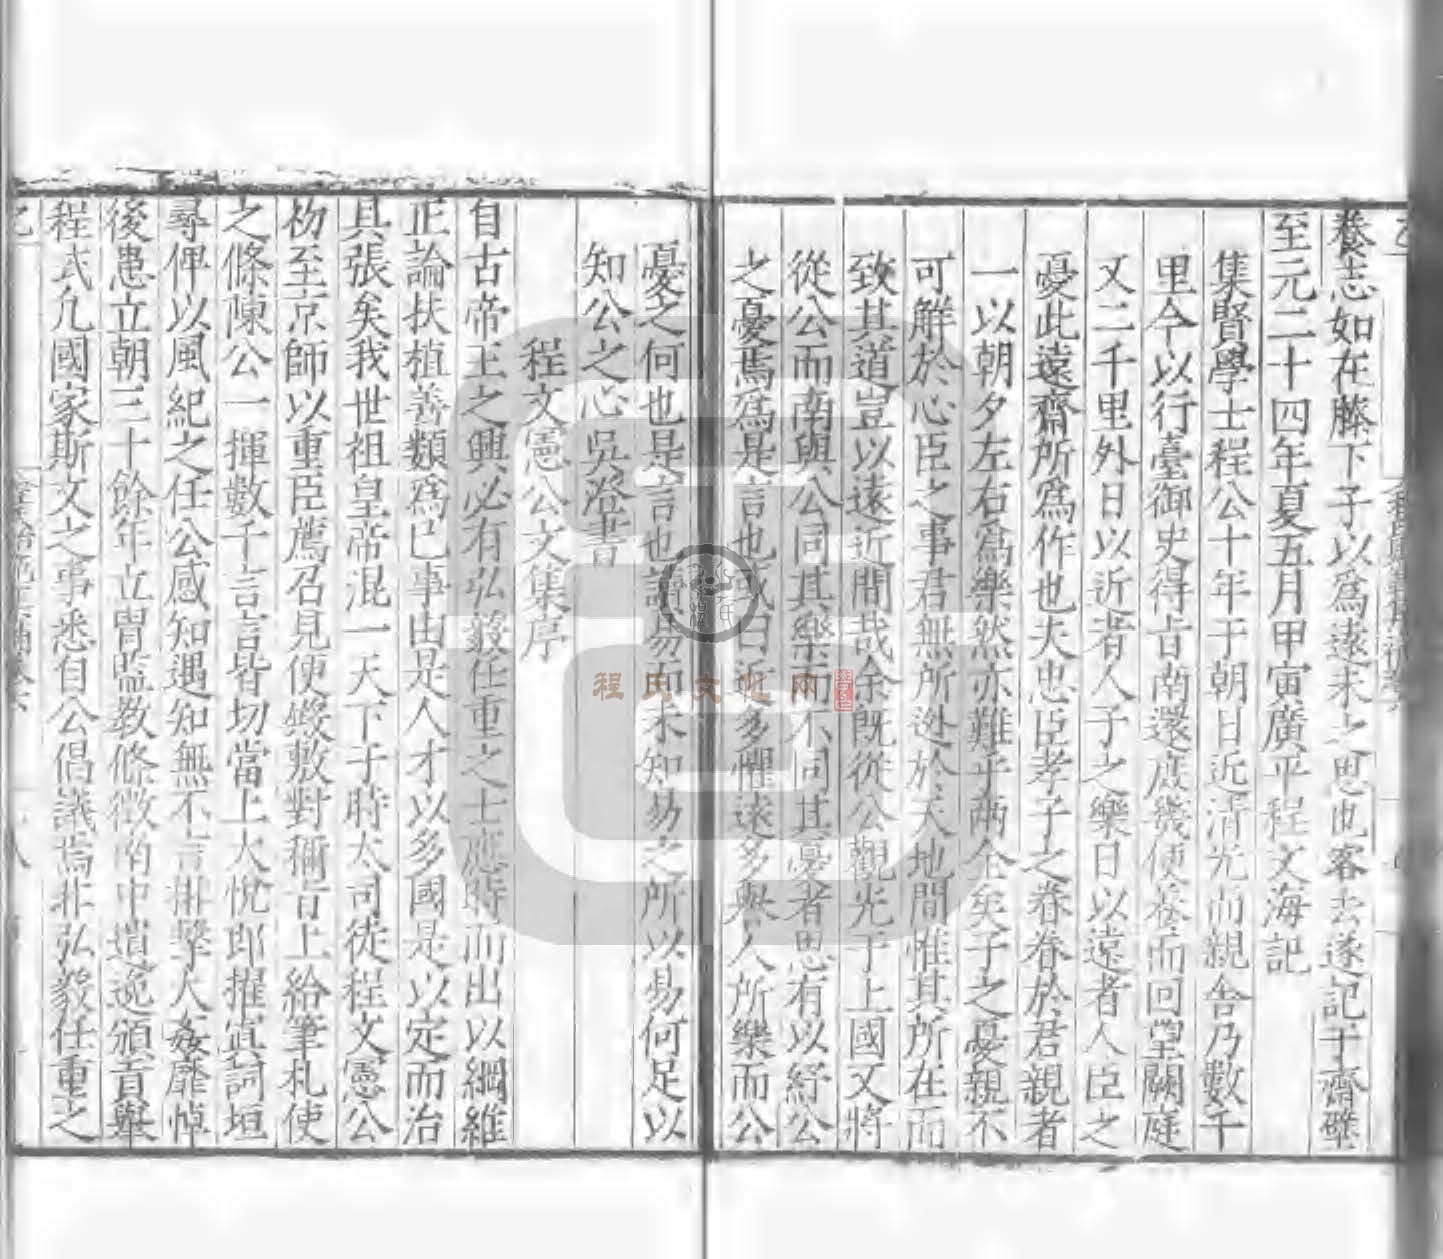 眷志如在藤下子以為遠未之思也客去遂記于齋壁
至元二十四年夏五月甲寅廣平程文海記
集賢學士程公十年于朝日近清光而親舍乃數千
里今以行臺御史得旨南還庶幾便養而回望闕庭
又二千里外日以近者人子之樂日以遠者人臣之
憂此遠齋所為作也夫忠臣孝子之眷眷於君親者
一以朝夕左右為樂然亦難乎兩全矣子之憂親不
可解於心臣之事君無所逃於天地間惟其所在而
致其道豈以遠近間哉余既從公觀光于上國又將
從公而南與公同其樂而不同其憂者思有以紓公
之憂焉為是言也或曰近多懼遠多譽人所樂而公
憂之何也是言也謂易而未知易之所以易何足以
知公之心吳澄書
程文憲公文集序
自古帝王之興必有弘毅任重之士應時而出以綱維
正論扶植善類為己事由是人才以多國是以定而治
具張矣我世祖皇帝混一天下于時大司徒程文憲公
初至京師以重臣薦召見便殿敷對稱旨上給筆札使
之條陳公一揮數千言言皆切當上大悅即擢寘詞垣
尋俾以風紀之任公感知遇知無不言排擊大姦靡悼
後患立朝三十餘年立冑監教條徵南中遺逸頒貢舉
程式凡國家斯文之事悉自公倡議焉非弘毅任重之
程氏文化网